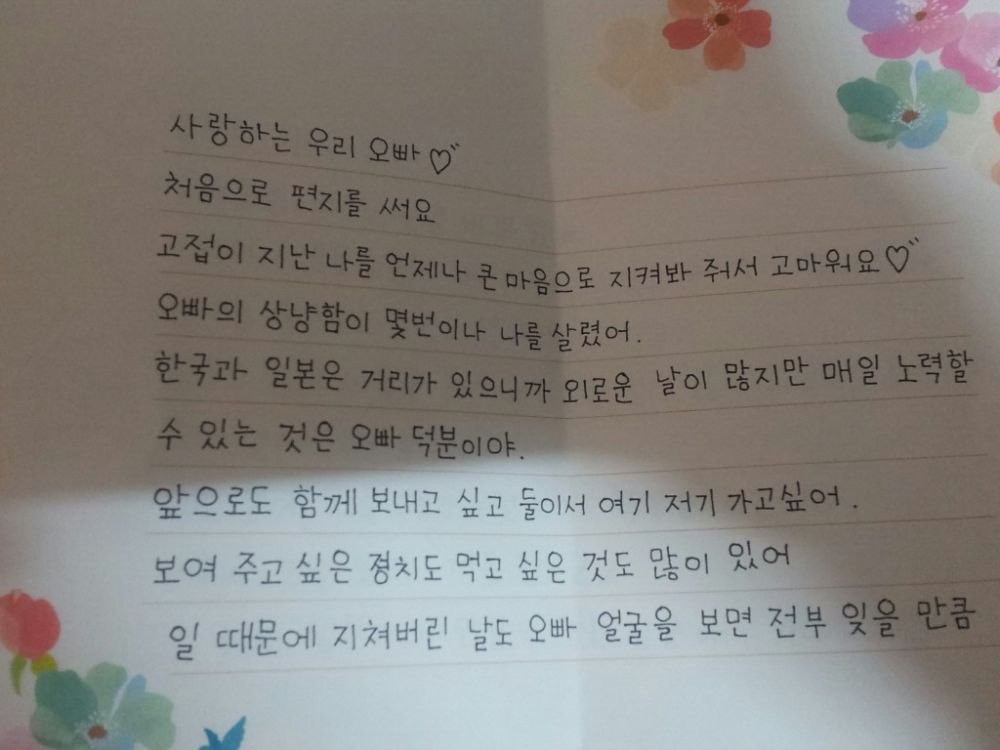 사랑하는 우리 오빠♡
처음으로 편지를 써요
고접이 지난 나를 언제나 큰 마음으로 지켜봐 줘서 고마워요♡
오빠의 상냥함이 몇번이나 나를 살렸어.
한국과 일본은 거리가 있으니까 외로운 날이 많지만 매일 노력할
수 있는 것은 오빠 덕분이야.
앞으로도 함께 보내고 싶고 둘이서 여기 저기 가고싶어.
보여 주고 싶은 졍치도 먹고 싶은 것도 많이 있어
일 때문에 지쳐버린 날도 오빠 얼굴을 보면 전부 잊을 만큼